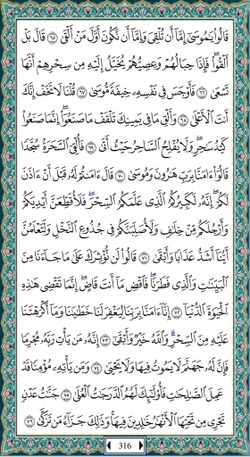 قَالُوا۟ يَـٰمُوسَىٰٓ إِمَّآ أَن تُلْقِىَ وَإِمَّآ أَن نَّكُونَ أَوَّلَ مَنْ أَلْقَىٰ ٦٥ قَالَ بَلْ
أَلْقُوا۟ ۖ فَإِذَا حِبَالُهُمْ وَعِصِيُّهُمْ يُخَيَّلُ إِلَيْهِ مِن سِحْرِهِمْ أَنَّهَا
تَسْعَىٰ ٦٦ فَأَوْجَسَ فِى نَفْسِهِۦ خِيفَةً مُّوسَىٰ ٦٧ قُلْنَا لَا تَخَفْ إِنَّكَ
أَنتَ ٱلْأَعْلَىٰ ٦٨ وَأَلْقِ مَا فِى يَمِينِكَ تَلْقَفْ مَا صَنَعُوٓا۟ ۖ إِنَّمَا صَنَعُوا۟
كَيْدُ سَـٰحِرٍ ۖ وَلَا يُفْلِحُ ٱلسَّاحِرُ حَيْثُ أَتَىٰ ٦٩ فَأُلْقِىَ ٱلسَّحَرَةُ سُجَّدًا
قَالُوٓا۟ ءَامَنَّا بِرَبِّ هَـٰرُونَ وَمُوسَىٰ ٧٠ قَالَ ءَامَنتُمْ لَهُۥ قَبْلَ أَنْ ءَاذَنَ
لَكُمْ ۖ إِنَّهُۥ لَكَبِيرُكُمُ ٱلَّذِى عَلَّمَكُمُ ٱلسِّحْرَ ۖ فَلَأُقَطِّعَنَّ أَيْدِيَكُمْ
وَأَرْجُلَكُم مِّنْ خِلَـٰفٍ وَلَأُصَلِّبَنَّكُمْ فِى جُذُوعِ ٱلنَّخْلِ وَلَتَعْلَمُنَّ
أَيُّنَآ أَشَدُّ عَذَابًا وَأَبْقَىٰ ٧١ قَالُوا۟ لَن نُّؤْثِرَكَ عَلَىٰ مَا جَآءَنَا مِنَ
ٱلْبَيِّنَـٰتِ وَٱلَّذِى فَطَرَنَا ۖ فَٱقْضِ مَآ أَنتَ قَاضٍ ۖ إِنَّمَا تَقْضِى هَـٰذِهِ
ٱلْحَيَوٰةَ ٱلدُّنْيَآ ٧٢ إِنَّآ ءَامَنَّا بِرَبِّنَا لِيَغْفِرَ لَنَا خَطَـٰيَـٰنَا وَمَآ أَكْرَهْتَنَا
عَلَيْهِ مِنَ ٱلسِّحْرِ ۗ وَٱللَّهُ خَيْرٌ وَأَبْقَىٰٓ ٧٣ إِنَّهُۥ مَن يَأْتِ رَبَّهُۥ مُجْرِمًا
فَإِنَّ لَهُۥ جَهَنَّمَ لَا يَمُوتُ فِيهَا وَلَا يَحْيَىٰ ٧٤ وَمَن يَأْتِهِۦ مُؤْمِنًا قَدْ
عَمِلَ ٱلصَّـٰلِحَـٰتِ فَأُو۟لَـٰٓئِكَ لَهُمُ ٱلدَّرَجَـٰتُ ٱلْعُلَىٰ ٧٥ جَنَّـٰتُ عَدْنٍ
تَجْرِى مِن تَحْتِهَا ٱلْأَنْهَـٰرُ خَـٰلِدِينَ فِيهَا ۚ وَذَٰلِكَ جَزَآءُ مَن تَزَكَّىٰ ٧٦
316